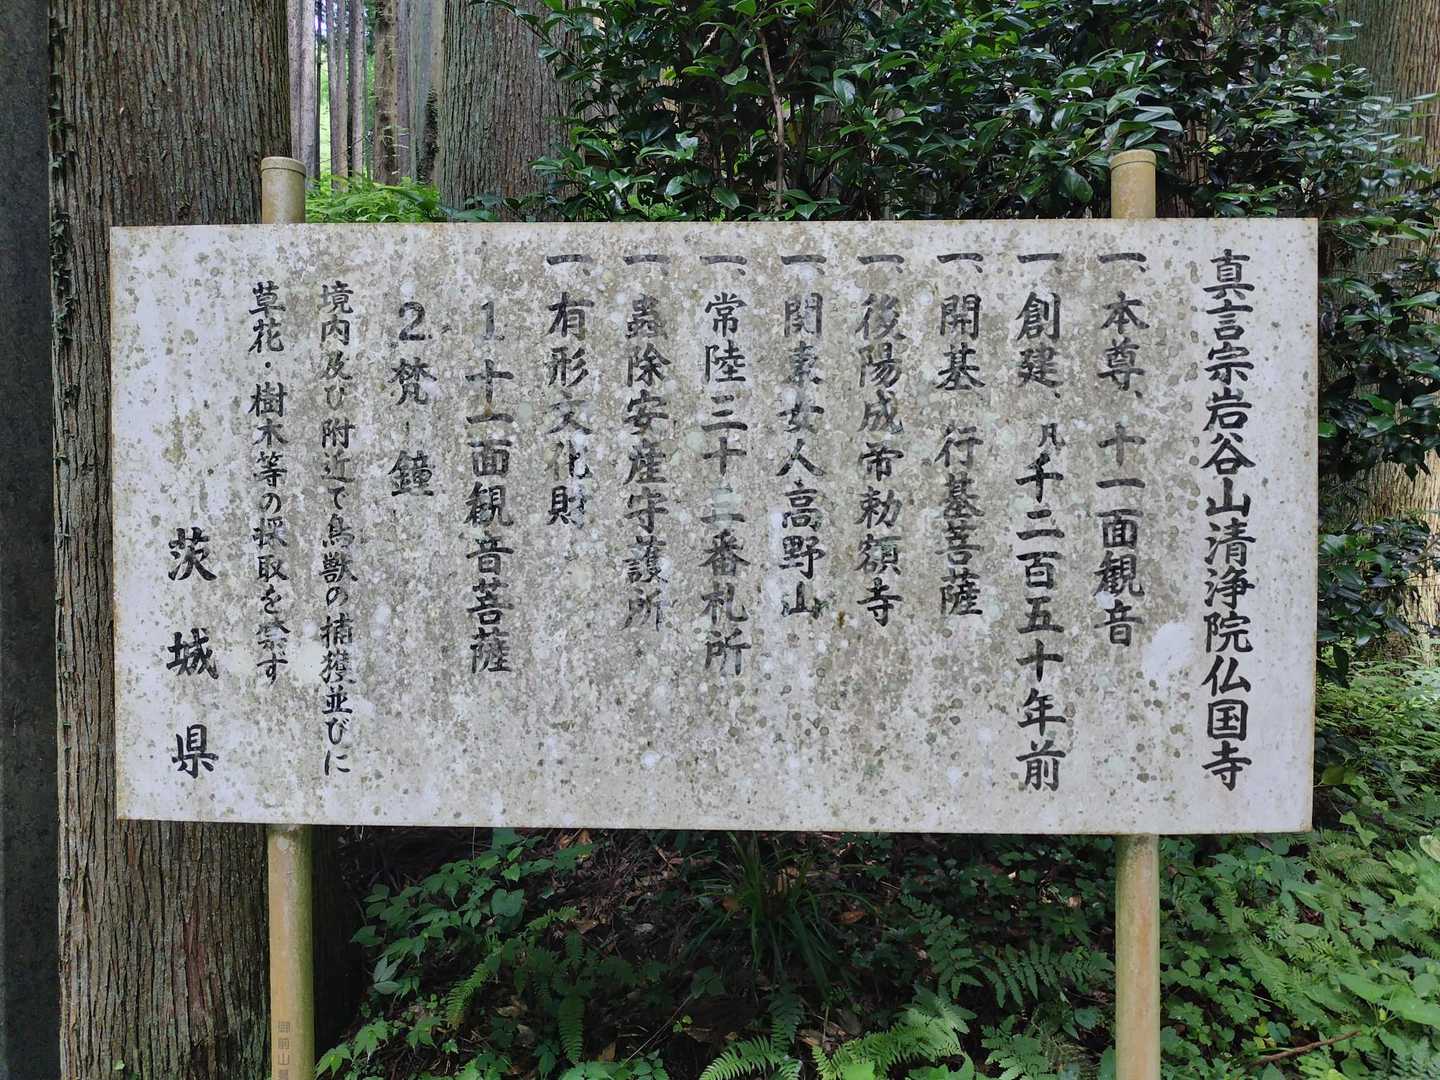 真言宗岩谷山清浄院仏国寺
一、本尊、十一面観音
一、創建、凡千二百五十年前
一、開基 行基菩薩
一、後陽成帝勅額寺
一、関東女人高野山
一、常陸三十三番札所
一、虫除安産守護所
一、有形文化財
1 十一面観音菩薩
2 梵 鐘
境内及び附近で鳥獣の捕獲並びに
草花・樹木等の採取を禁ず
茨城県
御前山